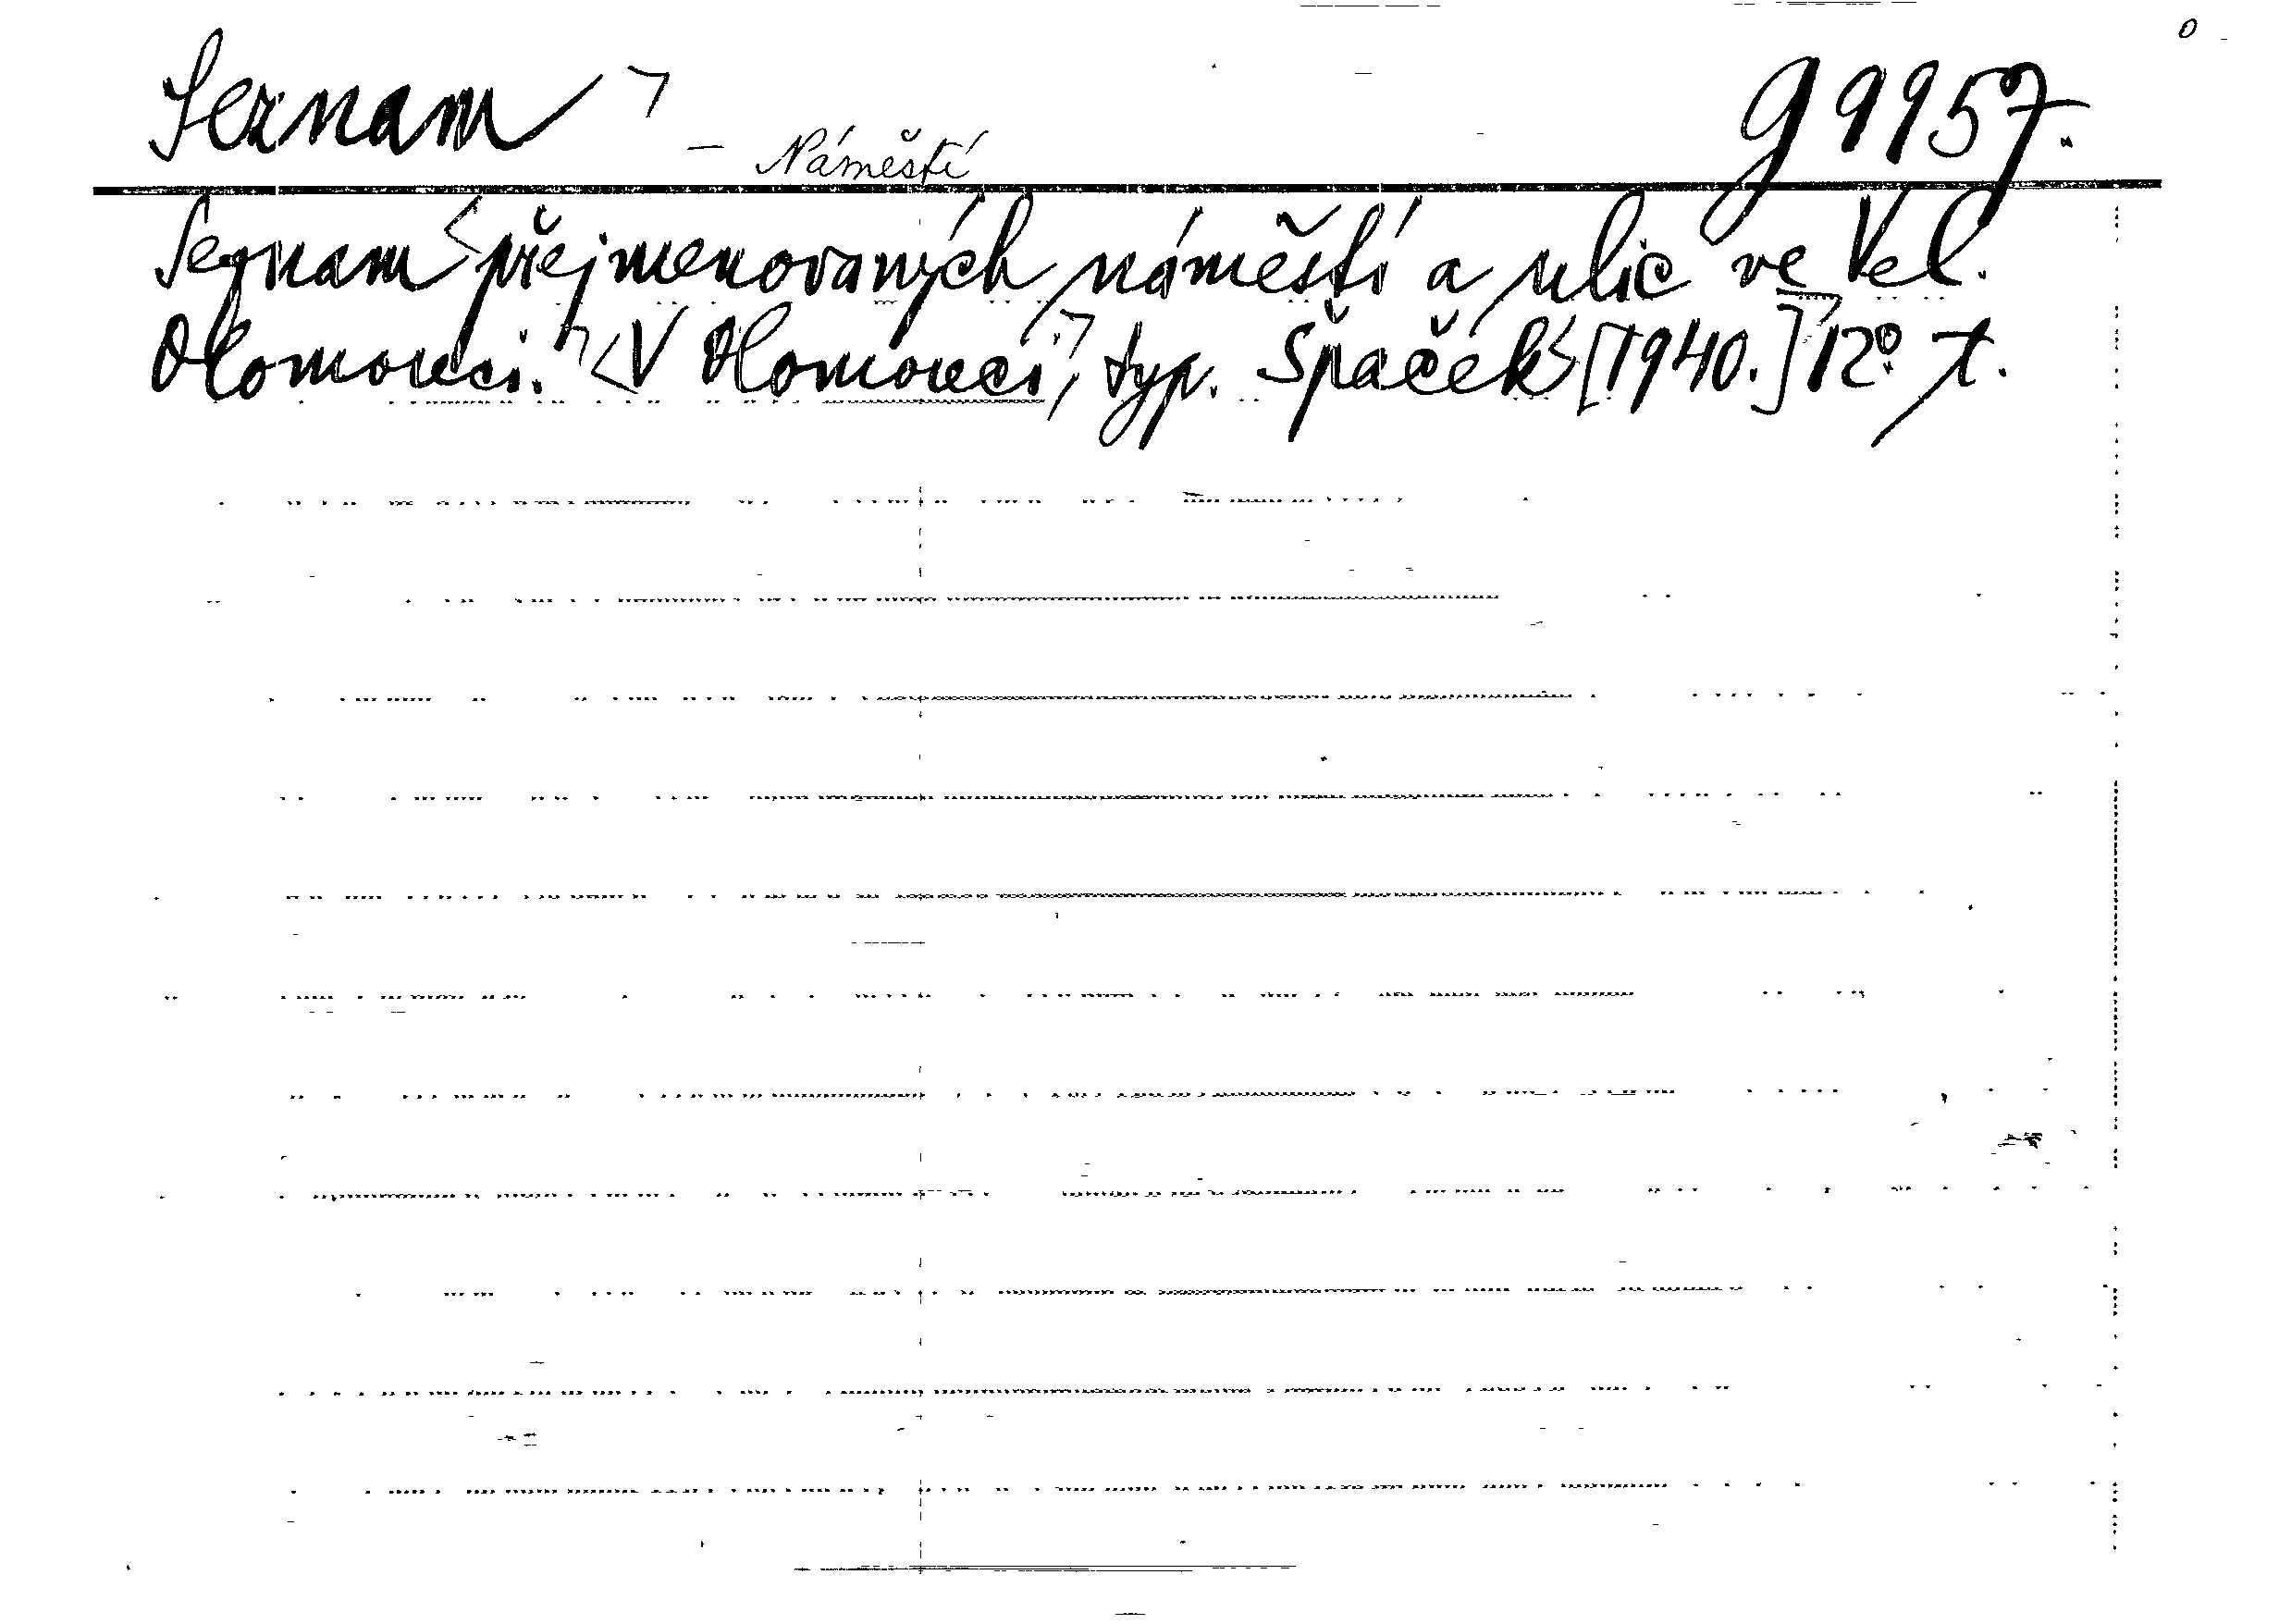 Seznam ⌝ — Náměstí g 9957.
Seznam <přejmenovaných náměstí a ulic ve Vel.
Olomouci.⌝ <V Olomouci,⌝ typ. Špaček <[1940.]⌝ 12°. t.